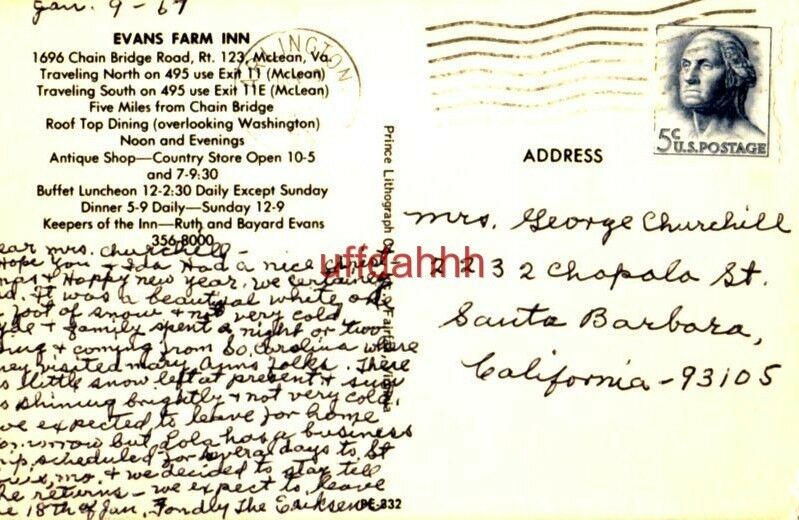 Jan. 9 - 67
EVANS FARM INN
1696 Chain Bridge Road, Rt. 123, McLean, Va.
Traveling North on 495 use Exit 11 (McLean)
Traveling South on 495 use Exit 11E (McLean)
Five Miles from Chain Bridge
Roof Top Dining (overlooking Washington)
Noon and Evenings
Antique Shop—Country Store Open 10-5
and 7-9:30
Buffet Luncheon 12-2:30 Daily Except Sunday
Dinner 5-9 Daily—Sunday 12-9
Keepers of the Inn—Ruth and Bayard Evans
356-8000
ear Mrs. Churchill -
Hope You + Ida Had a nice
+ Happy new year. We
. It was a beautiful white one
foot of snow + not very cold
+ family spent a night or two
+ coming from So. Carolina where
ey visited Mary Anns Folks. There
s little snow left at present + sun
s shining brightly + not very cold.
we expected to leave for home
but Lola has a business
ip scheduled for several days to St
Mo. + we decided to stay till
he returns - we expect to leave
e 18th of Jan. Fondly The Eriksens
PE-832
Prince Lithograph
LINGTON
5c
U.S. POSTAGE
ADDRESS
Mrs. George Churchill
2232 Chapala St.
Santa Barbara,
California - 93105
uffdahhh